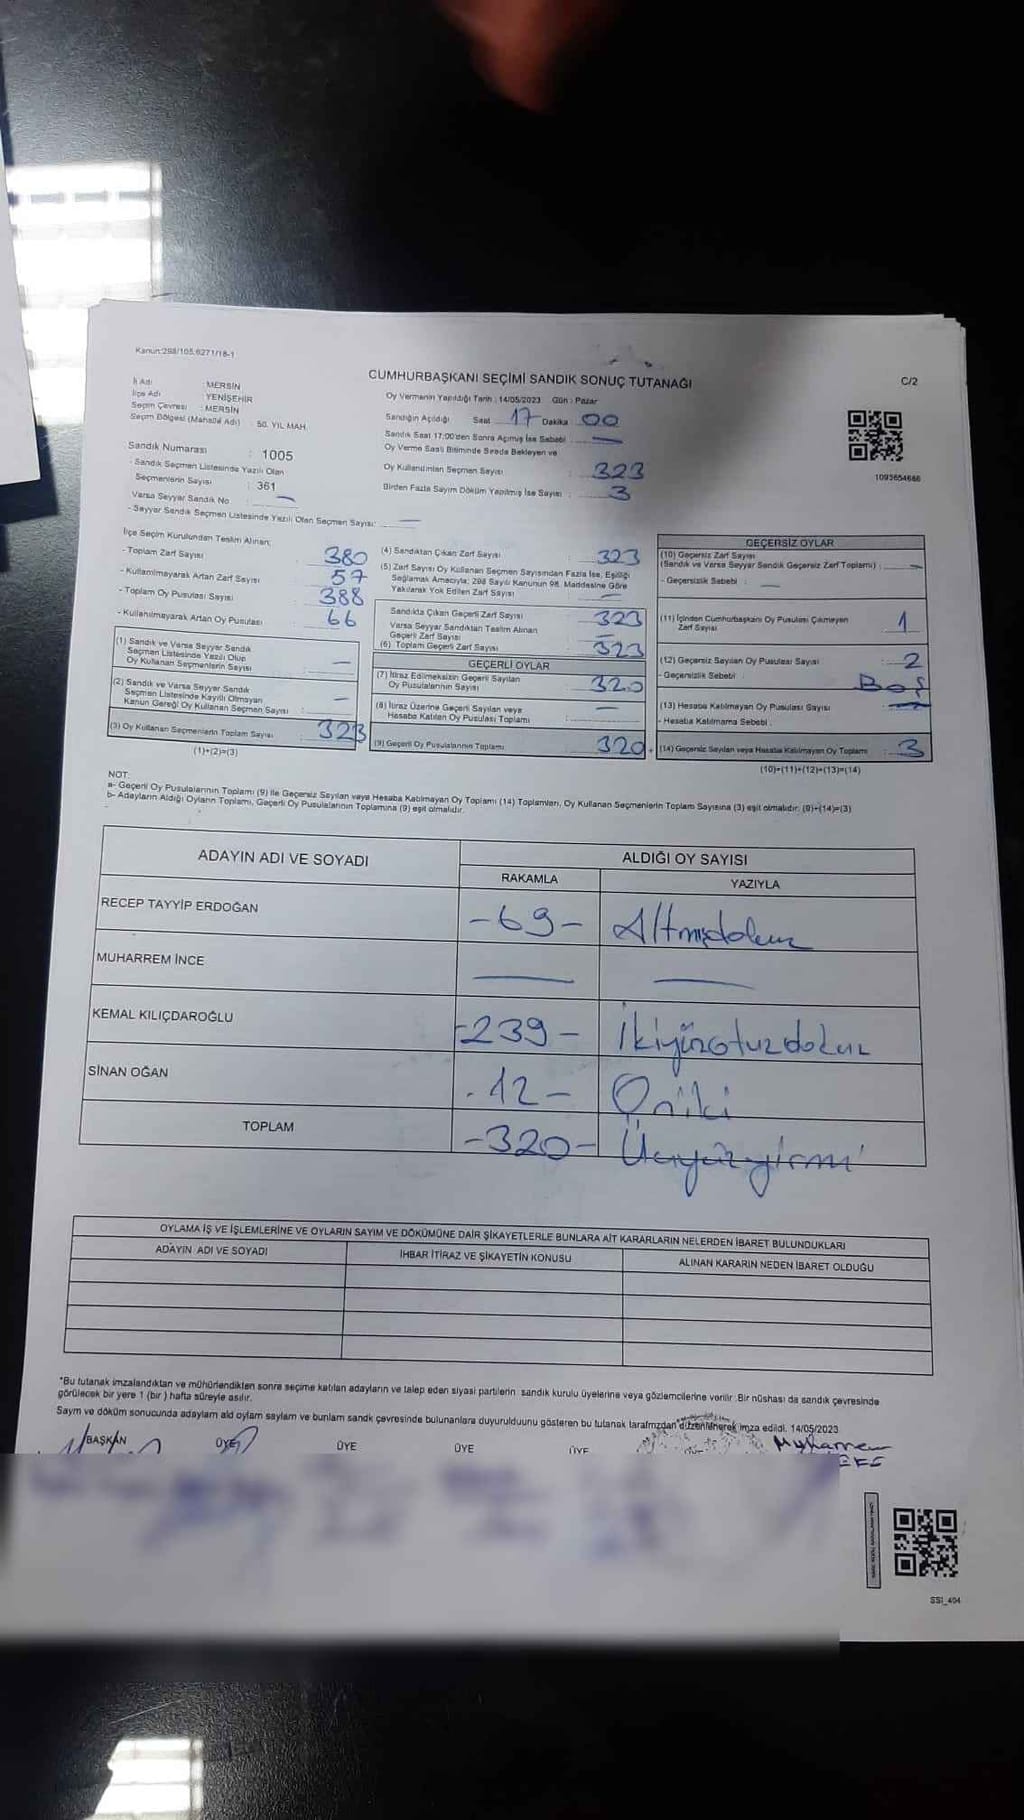 Kanun:298/105.6271/18-1
CUMHURBAŞKANI SEÇİMİ SANDIK SONUÇ TUTANAĞI
C/2
İl Adı : MERSİN
İlçe Adı : YENİŞEHİR
Seçim Çevresi : MERSİN
Seçim Bölgesi (Mahalle Adı) : 50. YIL MAH.
Sandık Numarası : 1005
- Sandık Seçmen Listesinde Yazılı Olan
Seçmenlerin Sayısı : 361
Varsa Seyyar Sandık No —
- Seyyar Sandık Seçmen Listesinde Yazılı Olan Seçmen Sayısı: —
Oy Vermenin Yapıldığı Tarih : 14/05/2023 Gün : Pazar
Sandığın Açıldığı Saat 17 Dakika 00
Sandık Saat 17:00'den Sonra Açılmış İse Sebebi —
Oy Verme Saati Bitiminde Sırada Bekleyen ve
Oy Kullandırılan Seçmen Sayısı : 323
Birden Fazla Sayım Döküm Yapılmış İse Sayısı : 3
1093654686
İlçe Seçim Kurulundan Teslim Alınan:
- Toplam Zarf Sayısı 380
- Kullanılmayarak Artan Zarf Sayısı 57
- Toplam Oy Pusulası Sayısı 388
- Kullanılmayarak Artan Oy Pusulası 66
(1) Sandık ve Varsa Seyyar Sandık
Seçmen Listesinde Yazılı Olup
Oy Kullanan Seçmenlerin Sayısı —
(2) Sandık ve Varsa Seyyar Sandık
Seçmen Listesinde Kayıtlı Olmayan
Kanun Gereği Oy Kullanan Seçmen Sayısı : —
(3) Oy Kullanan Seçmenlerin Toplam Sayısı 323
(1)+(2)=(3)
(4) Sandıktan Çıkan Zarf Sayısı : 323
(5) Zarf Sayısı Oy Kullanan Seçmen Sayısından Fazla İse, Eşitliği
Sağlamak Amacıyla; 298 Sayılı Kanunun 98. Maddesine Göre
Yakılarak Yok Edilen Zarf Sayısı : —
Sandıkta Çıkan Geçerli Zarf Sayısı 323
Varsa Seyyar Sandıktan Teslim Alınan
Geçerli Zarf Sayısı —
(6) Toplam Geçerli Zarf Sayısı 323
GEÇERLİ OYLAR
(7) İtiraz Edilmeksizin Geçerli Sayılan
Oy Pusulalarının Sayısı : 320
(8) İtiraz Üzerine Geçerli Sayılan veya
Hesaba Katılan Oy Pusulası Toplamı : —
(9) Geçerli Oy Pusulalarının Toplamı 320
GEÇERSİZ OYLAR
(10) Geçersiz Zarf Sayısı
(Sandık ve Varsa Seyyar Sandık Geçersiz Zarf Toplamı) : —
- Geçersizlik Sebebi : —
(11) İçinden Cumhurbaşkanı Oy Pusulası Çıkmayan
Zarf Sayısı : 1
(12) Geçersiz Sayılan Oy Pusulası Sayısı : 2
- Geçersizlik Sebebi : BOŞ
(13) Hesaba Katılmayan Oy Pusulası Sayısı : —
- Hesaba Katılmama Sebebi :
(14) Geçersiz Sayılan veya Hesaba Katılmayan Oy Toplamı : 3
(10)+(11)+(12)+(13)=(14)
NOT:
a- Geçerli Oy Pusulalarının Toplamı (9) ile Geçersiz Sayılan veya Hesaba Katılmayan Oy Toplamı (14) Toplamları, Oy Kullanan Seçmenlerin Toplam Sayısına (3) eşit olmalıdır. (9)+(14)=(3)
b- Adayların Aldığı Oyların Toplamı, Geçerli Oy Pusulalarının Toplamına (9) eşit olmalıdır.
ADAYIN ADI VE SOYADI
ALDIĞI OY SAYISI
RAKAMLA YAZIYLA
RECEP TAYYİP ERDOĞAN -69- Altmışdokuz
MUHARREM İNCE — —
KEMAL KILIÇDAROĞLU -239- İkiyüzotuzdokuz
SİNAN OĞAN -12- Oniki
TOPLAM -320- Üçyüzyirmi
OYLAMA İŞ VE İŞLEMLERİNE VE OYLARIN SAYIM VE DÖKÜMÜNE DAİR ŞİKAYETLERLE BUNLARA AİT KARARLARIN NELERDEN İBARET BULUNDUKLARI
ADAYIN ADI VE SOYADI İHBAR İTİRAZ VE ŞİKAYETİN KONUSU ALINAN KARARIN NEDEN İBARET OLDUĞU
*Bu tutanak imzalandıktan ve mühürlendikten sonra seçime katılan adayların ve talep eden siyasi partilerin sandık kurulu üyelerine veya gözlemcilerine verilir. Bir nüshası da sandık çevresinde
görülecek bir yere 1 (bir) hafta süreyle asılır.
Sayım ve döküm sonucunda adayların aldı oyların sayıları ve bunların sandık çevresinde bulunanlara duyurulduunu gösteren bu tutanak tarafmzdan düzenlenerek imza edildi. 14/05/2023
BAŞKAN ÜYE ÜYE ÜYE ÜYE
Muharrem
SSİ_404